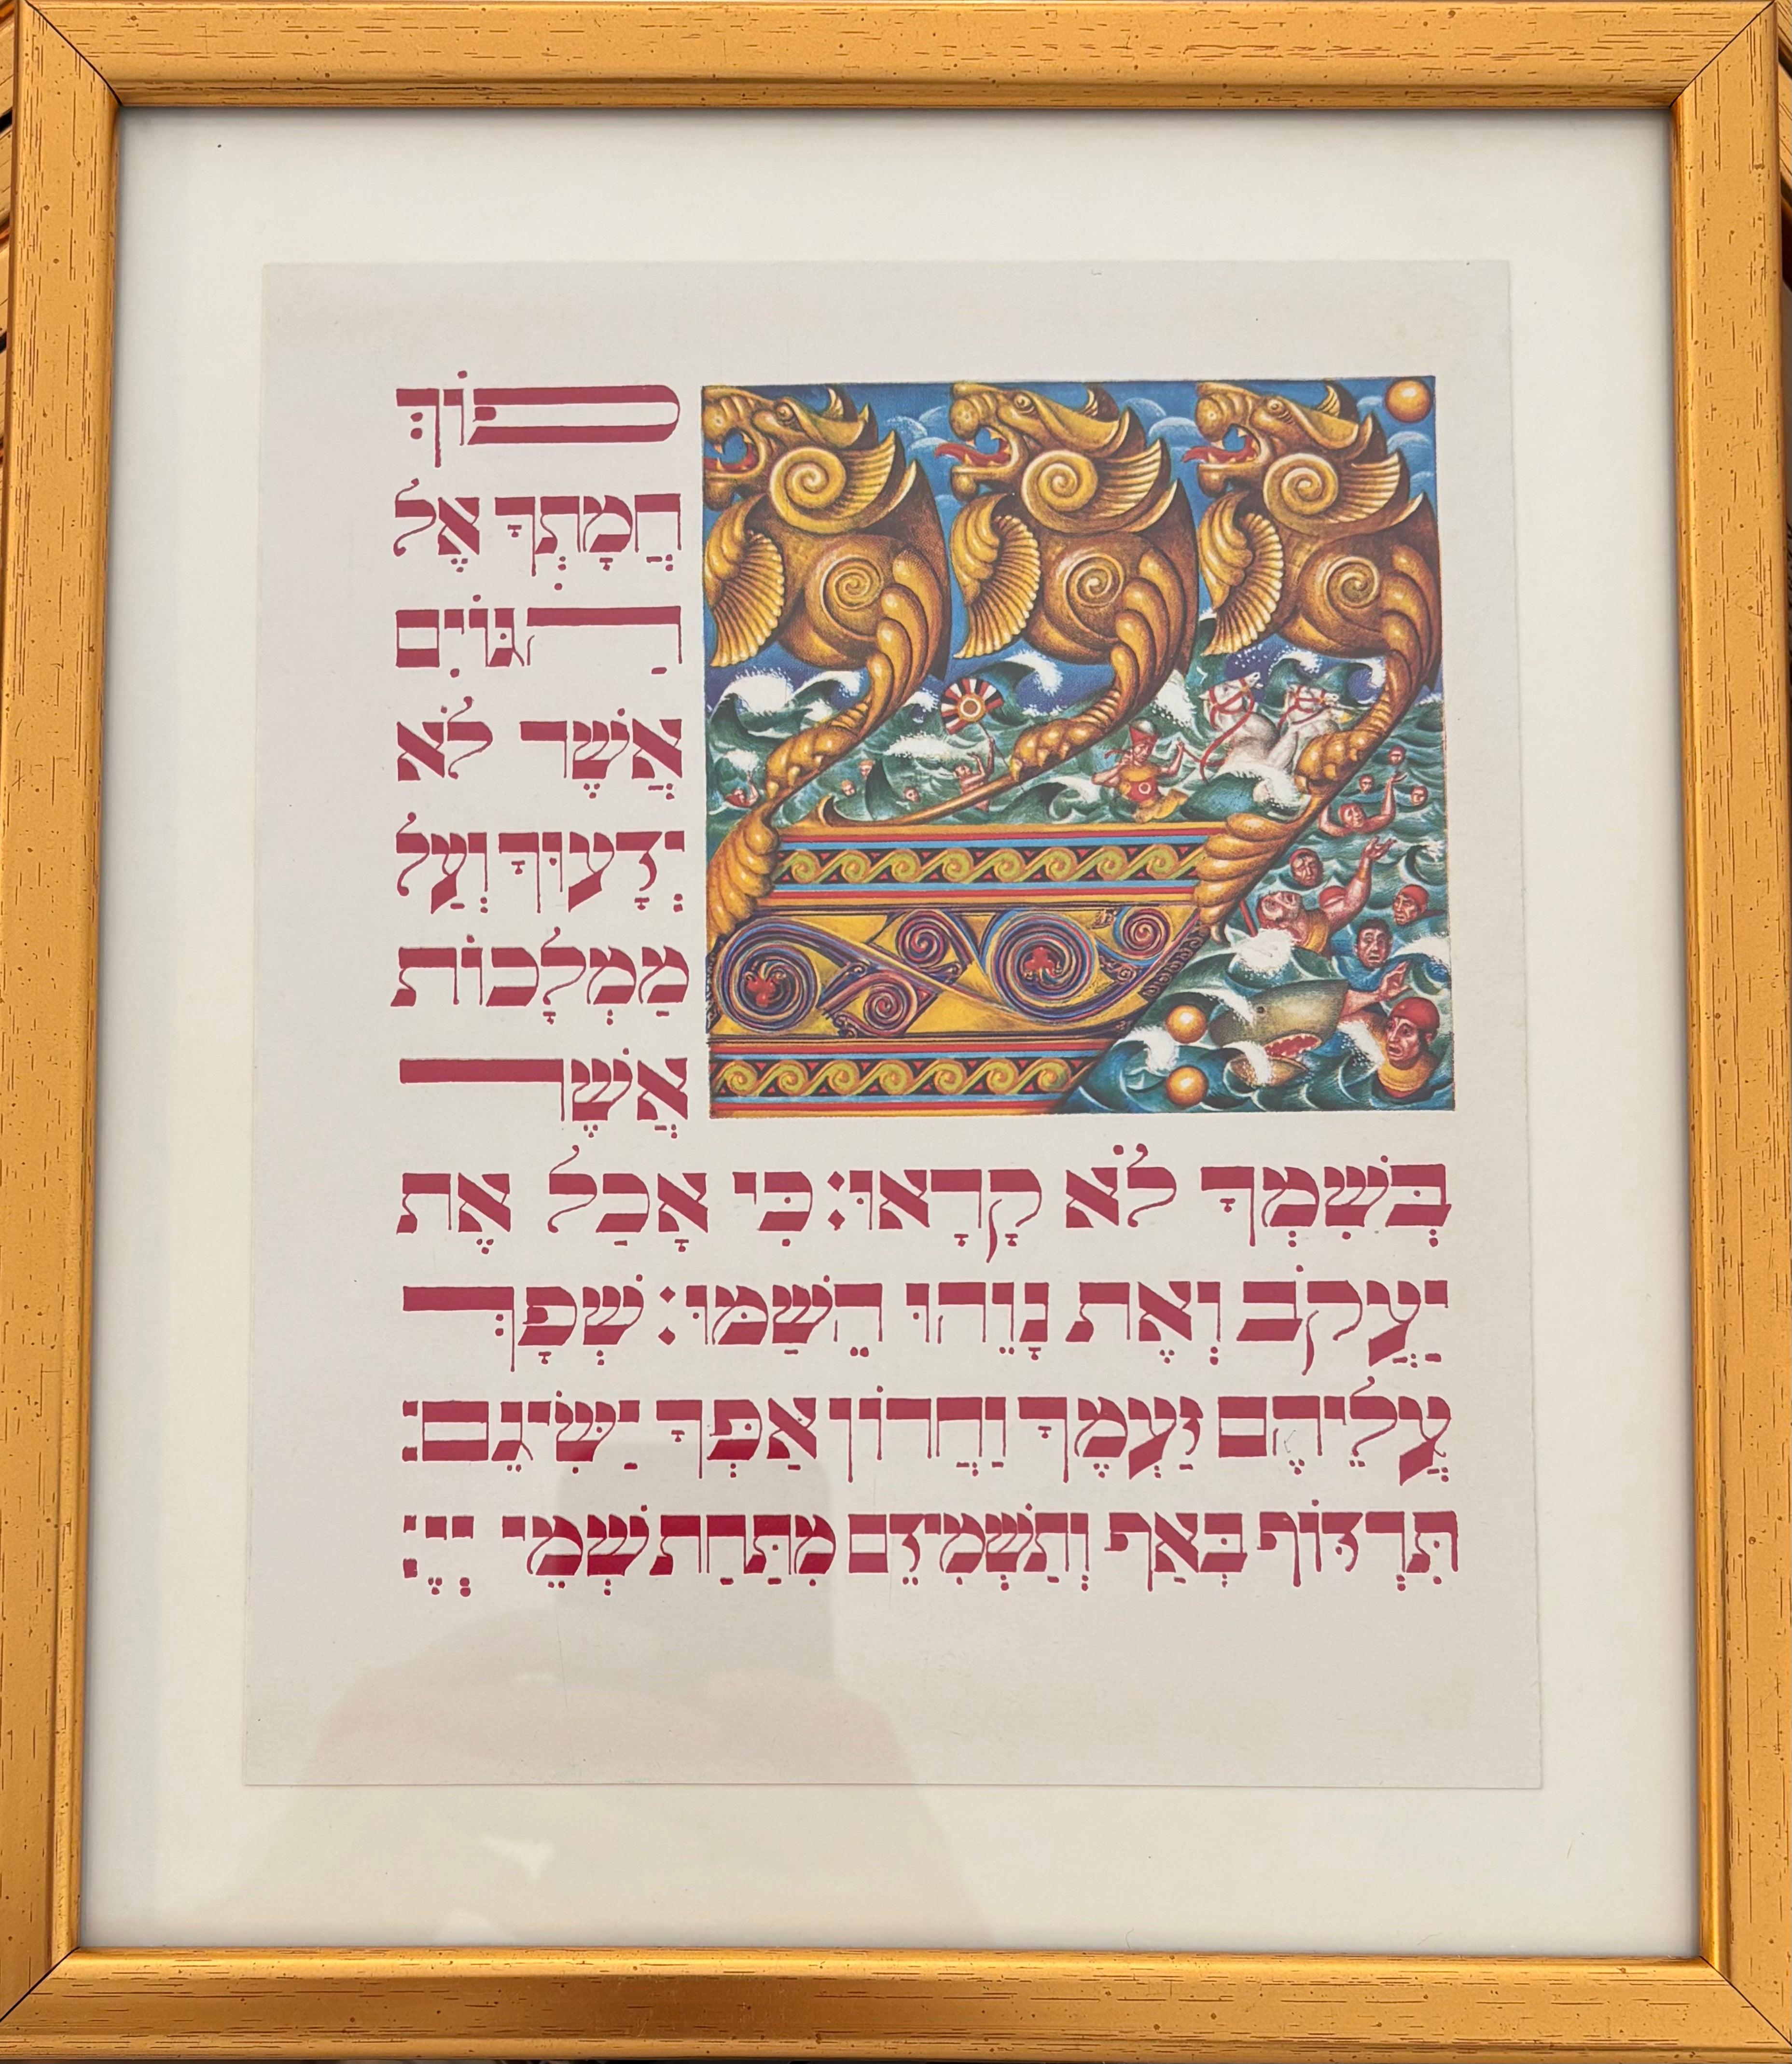 פוֹךְ
חֲמָתְךָ אֶל
הַגּוֹיִם
אֲשֶׁר לֹא
יְדָעוּךָ וְעַל
מַמְלָכוֹת
אֲשֶׁר
בְּשִׁמְךָ לֹא קָרָאוּ: כִּי אָכַל אֶת
יַעֲקֹב וְאֶת נָוֵהוּ הֵשַׁמּוּ: שְׁפָךְ
עֲלֵיהֶם זַעְמֶךָ וַחֲרוֹן אַפְּךָ יַשִּׂיגֵם:
תִּרְדּוֹף בְּאַף וְתַשְׁמִידֵם מִתַּחַת שְׁמֵי יְיָ: